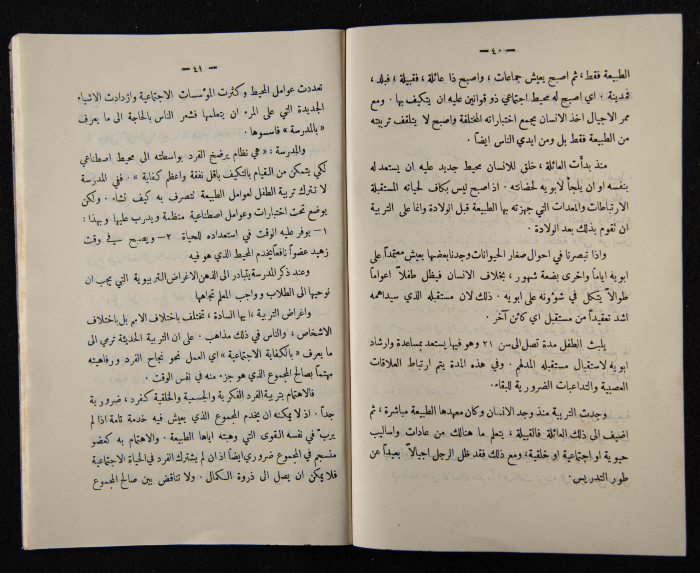 — ٤٠ —
الطبيعة فقط، ثم اصبح يعيش جماعات، واصبح ذا عائلة، فقبيلة، فبلد،
فمدينة. اي اصبح له محيط اجتماعي ذو قوانين عليه ان يتكيف بها. ومع
ممر الاجيال اخذ الانسان يجمع اختباراته المختلفة واصبح لا يتلقف تربيته
من الطبيعة فقط بل ومن ايدي الناس ايضاً.
منذ بدأت العائلة، خلق للانسان محيط جديد عليه ان يستعد له
بنفسه او ان يلجأ لابويه لحضانته. اذ اصبح ليس بكاف لحياته المستقبلة
الارتباطات والمعدات التي جهزته بها الطبيعة قبل الولادة وانما على التربية
ان تقوم بذلك بعد الولادة.
واذا تبصرنا في احوال صغار الحيوانات وجدنا بعضها يعيش معتمداً على
ابويه اياماً واخرى بضعة شهور، بخلاف الانسان فيظل طفلاً اعواماً
طوالاً يتكل في شؤونه على ابويه. ذلك لان مستقبله الذي سيداهمه
اشد تعقيداً من مستقبل اي كائن آخر.
يلبث الطفل مدة تصل الى سن ٢١ وهو فيها يستعد بمساعدة وارشاد
ابويه لاستقبال مستقبله المدلهم. وفي هذه المدة يتم ارتباط العلاقات
العصبية والتداعيات الضرورية للبقاء.
وجدت التربية منذ وجد الانسان وكان معهدها الطبيعة مباشرة، ثم
اضيف الى ذلك العائلة فالقبيلة، يتعلم ما هنالك من عادات واساليب
حيوية او اجتماعية او خلقية، ومع ذلك فقد ظل الرجل اجيالاً بعيداً عن
طور التدريس.
— ٤١ —
تعددت عوامل المحيط وكثرت المؤسسات الاجتماعية وازدادت الاشياء
الجديدة التي على المرء ان يتعلمها فشعر الناس بالحاجة الى ما يعرف
«بالمدرسة» فاسسوها.
والمدرسة: «هي نظام يرضخ الفرد بواسطته الى محيط اصطناعي
لكي يتمكن من القيام بالتكيف باقل نفقة واعظم كفاية». ففي المدرسة
لا تترك تربية الطفل لعوامل الطبيعة تتصرف به كيف تشاء. ولكن
يوضع تحت اختبارات وعوامل اصطناعية منظمة ويدرب عليها وبهذا:
١— يوفر عليه الوقت في استعداده للحياة ٢— ويصبح في وقت
زهيد عضواً نافعاً يخدم المحيط الذي هو فيه
وعند ذكر المدرسة يتبادر الى الذهن الاغراض التربيوية التي يجب ان
نوجهها الى الطلاب وواجب المعلم تجاهها.
واغراض التربية، ايها السادة، تختلف باختلاف الامم بل باختلاف
الاشخاص، والناس في ذلك مذاهب. على ان التربية الحديثة ترمي الى
ما يعرف «بالكفاية الاجتماعية» اي العمل نحو نجاح الفرد ورفاهيته
مهتماً بصالح المجموع الذي هو جزء منه في نفس الوقت.
فالاهتمام بتربية الفرد الفكرية والجسمية والخلقية كفرد، ضرورية
جداً. اذ لا يمكنه ان يخدم المجموع الذي يعيش فيه خدمة تامة اذا لم
يربّ في نفسه القوى التي وهبته اياها الطبيعة. والاهتمام به كعضو
منسجم في المجموع ضروري ايضاً اذ ان لم يشترك الفرد في الحياة الاجتماعية
فلا يمكن ان يصل الى ذروة الكمال. ولا تناقض بين صالح المجموع